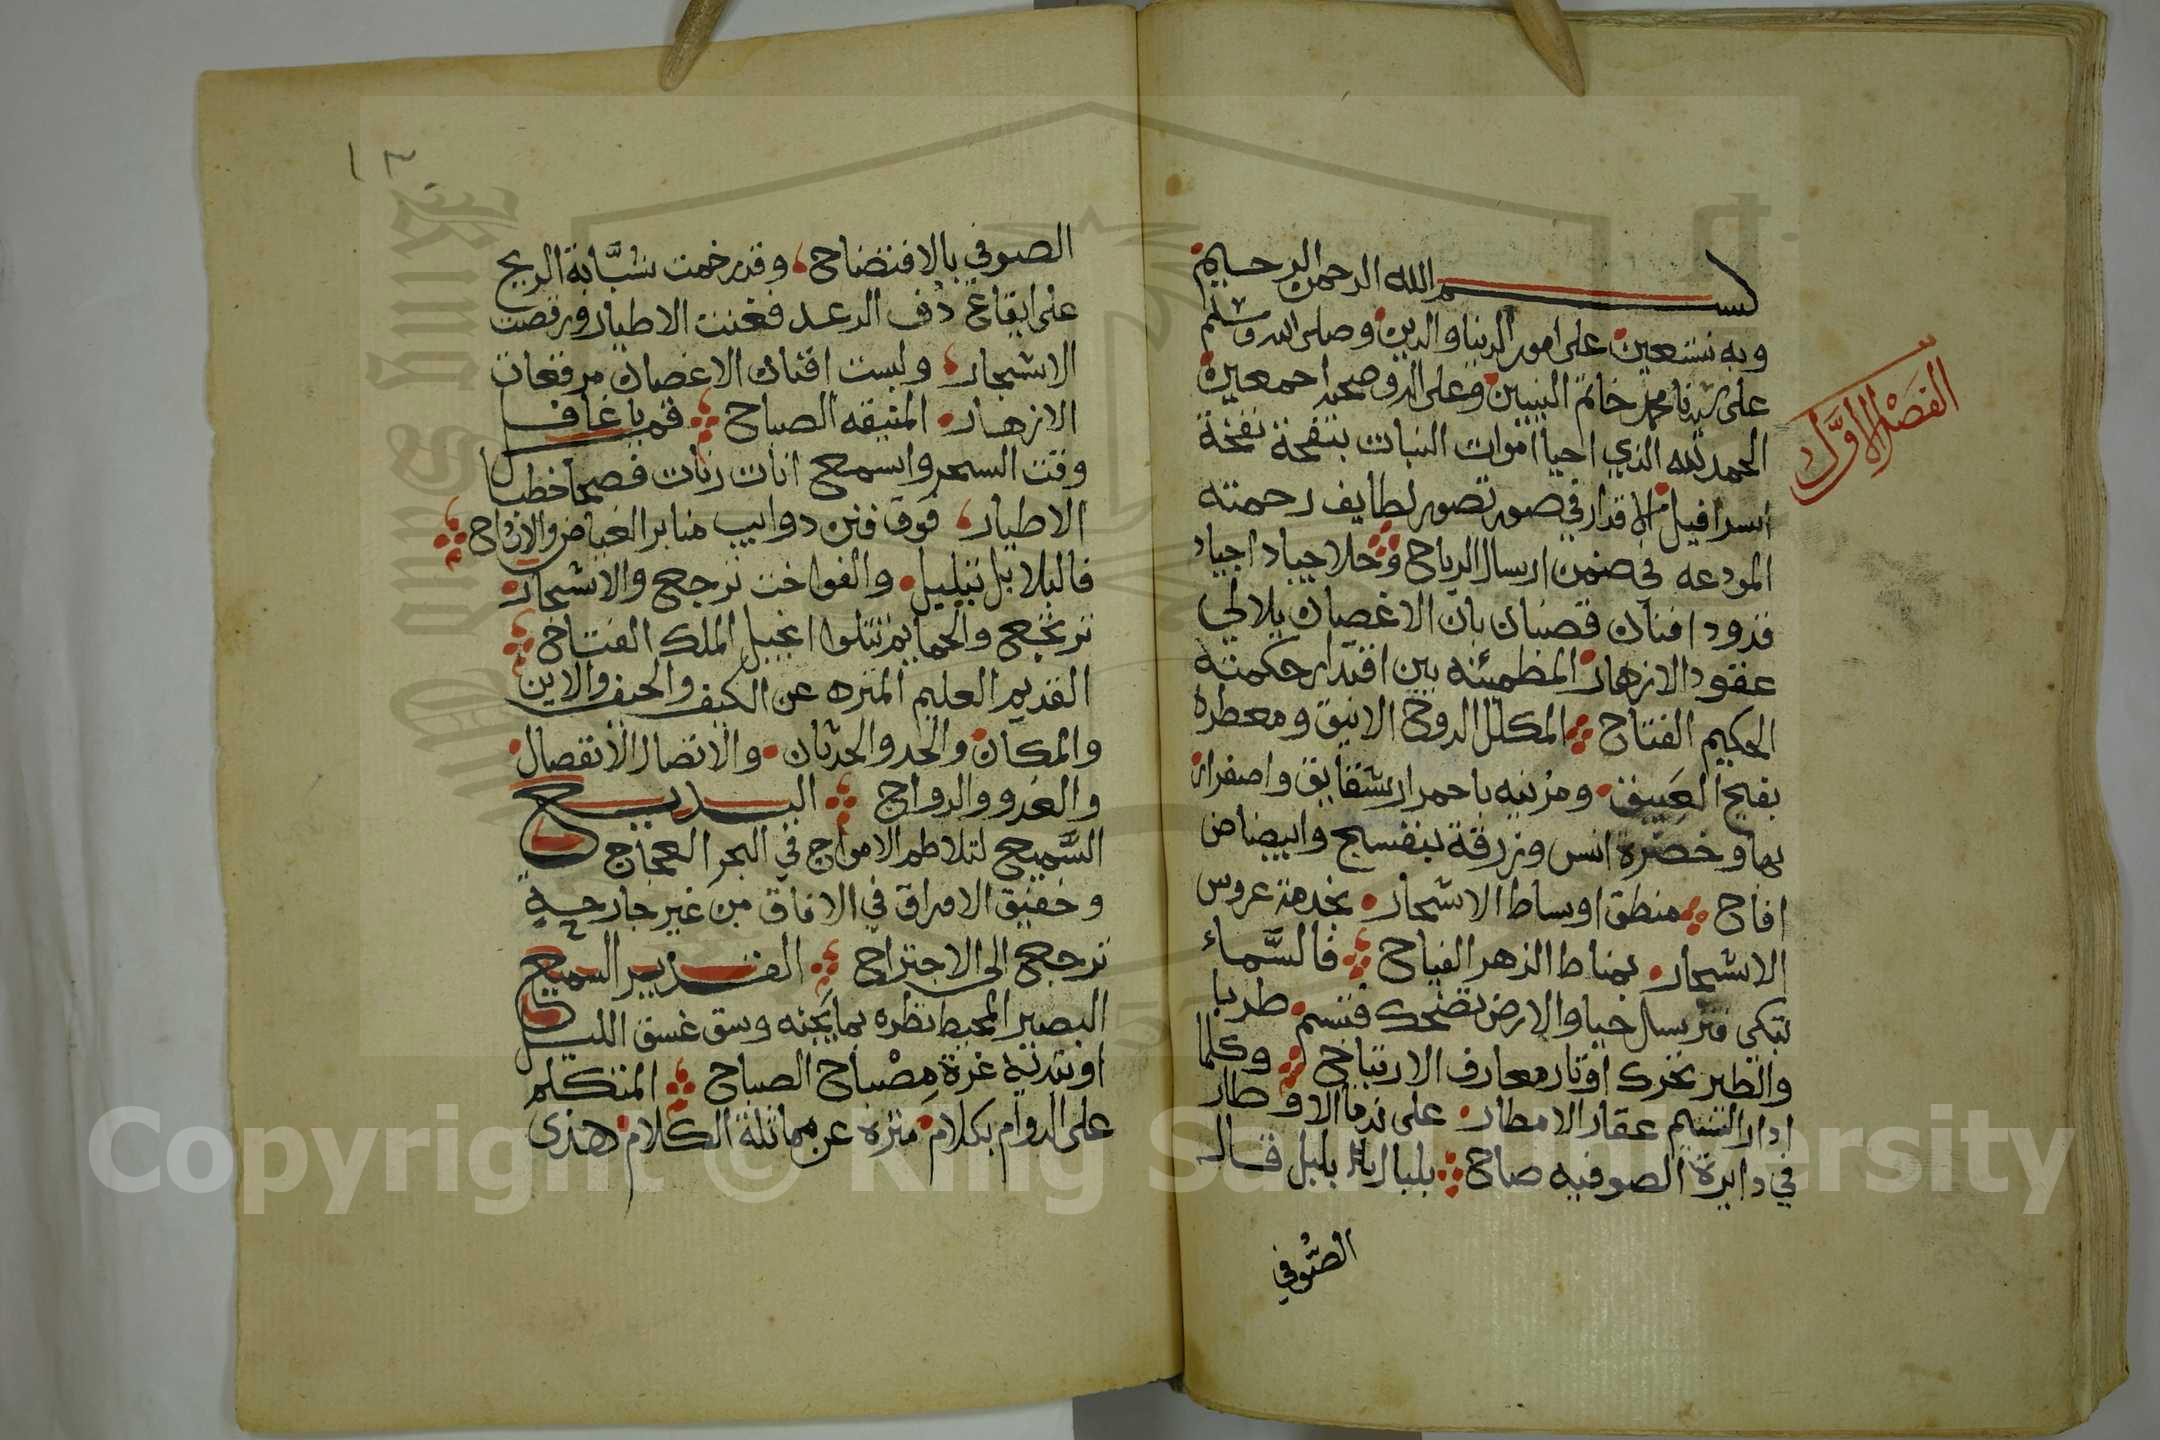 بسم الله الرحمن الرحيم
وبه نستعين على امور الدنيا والدين وصلى الله وسلم
على سيدنا محمد خاتم النبيين وعلى اله وصحبه اجمعين
الفصل الاول
الحمد لله الذي احيا اموات النبات بنفحة نفخة
اسرافيل الاقدار في صور تصوير لطايف رحمته
المودعه في ضمن ارسال الرياح وحلا جياد اجياد
قدود افنان قضبان بان الاغصان بلالي
عقود الازهار المطمئنه بين اقتدار حكمته
الحكيم الفتاح المكلل الدوح الانيق ومعطره
بفيح العبيق ومزينه باحمرار شقايق واصفرار
بها وخضرة انس وزرقة بنفسج وابيضاض
افاح منطق اوساط الاشجار بخدمة عروس
الاشجار بمناط الزهر الفياح فالسماء
تبكي فترسل حيا والارض تضحك فتسم طربا
والطير تحرك اوتار معارف الارتياح وكلما
ادار النسيم عقار الامطار على ندما الا وطار
في دايرة الصوفيه صاح بلبال بال بلبل قال
الصوفي
١٣
الصوفي بالافتضاح وقد رخمت شبابة الريح
على ايقاع دف الرعد فغنت الاطيار ورقصت
الاشجار ولبست افنان الاغصان مرقعات
الازهار المتيقه الصباح قم يا غافل
وقت السحر واسمع انات رنات فصحا خطبا
الاطيار فوق فنن دوايب منابر الغياض والادواح
فالبلابل تبلبل والفواخت ترجع والاشجار
ترتجع والحمايم تتلوا انجيل الملك الفتاح
القديم العليم المنزه عن الكيف والحيف والاين
والمكان والحد والحدثان والاتصال الانفصال
والغدو والرواح البديع
السميع لتلاطم الامواج في البحر العجاج
وخفيق الاوراق في الافاق من غير جارحة
ترجع الى الاجتراح القدير السميع
البصير المحيط نظره بما يجنه وسق غسق الليل
او تبديه غرة مصباح الصباح المتكلم
على الدوام بكلام منزه عن مماثلة الكلام هذى
Copyright © King Saud University